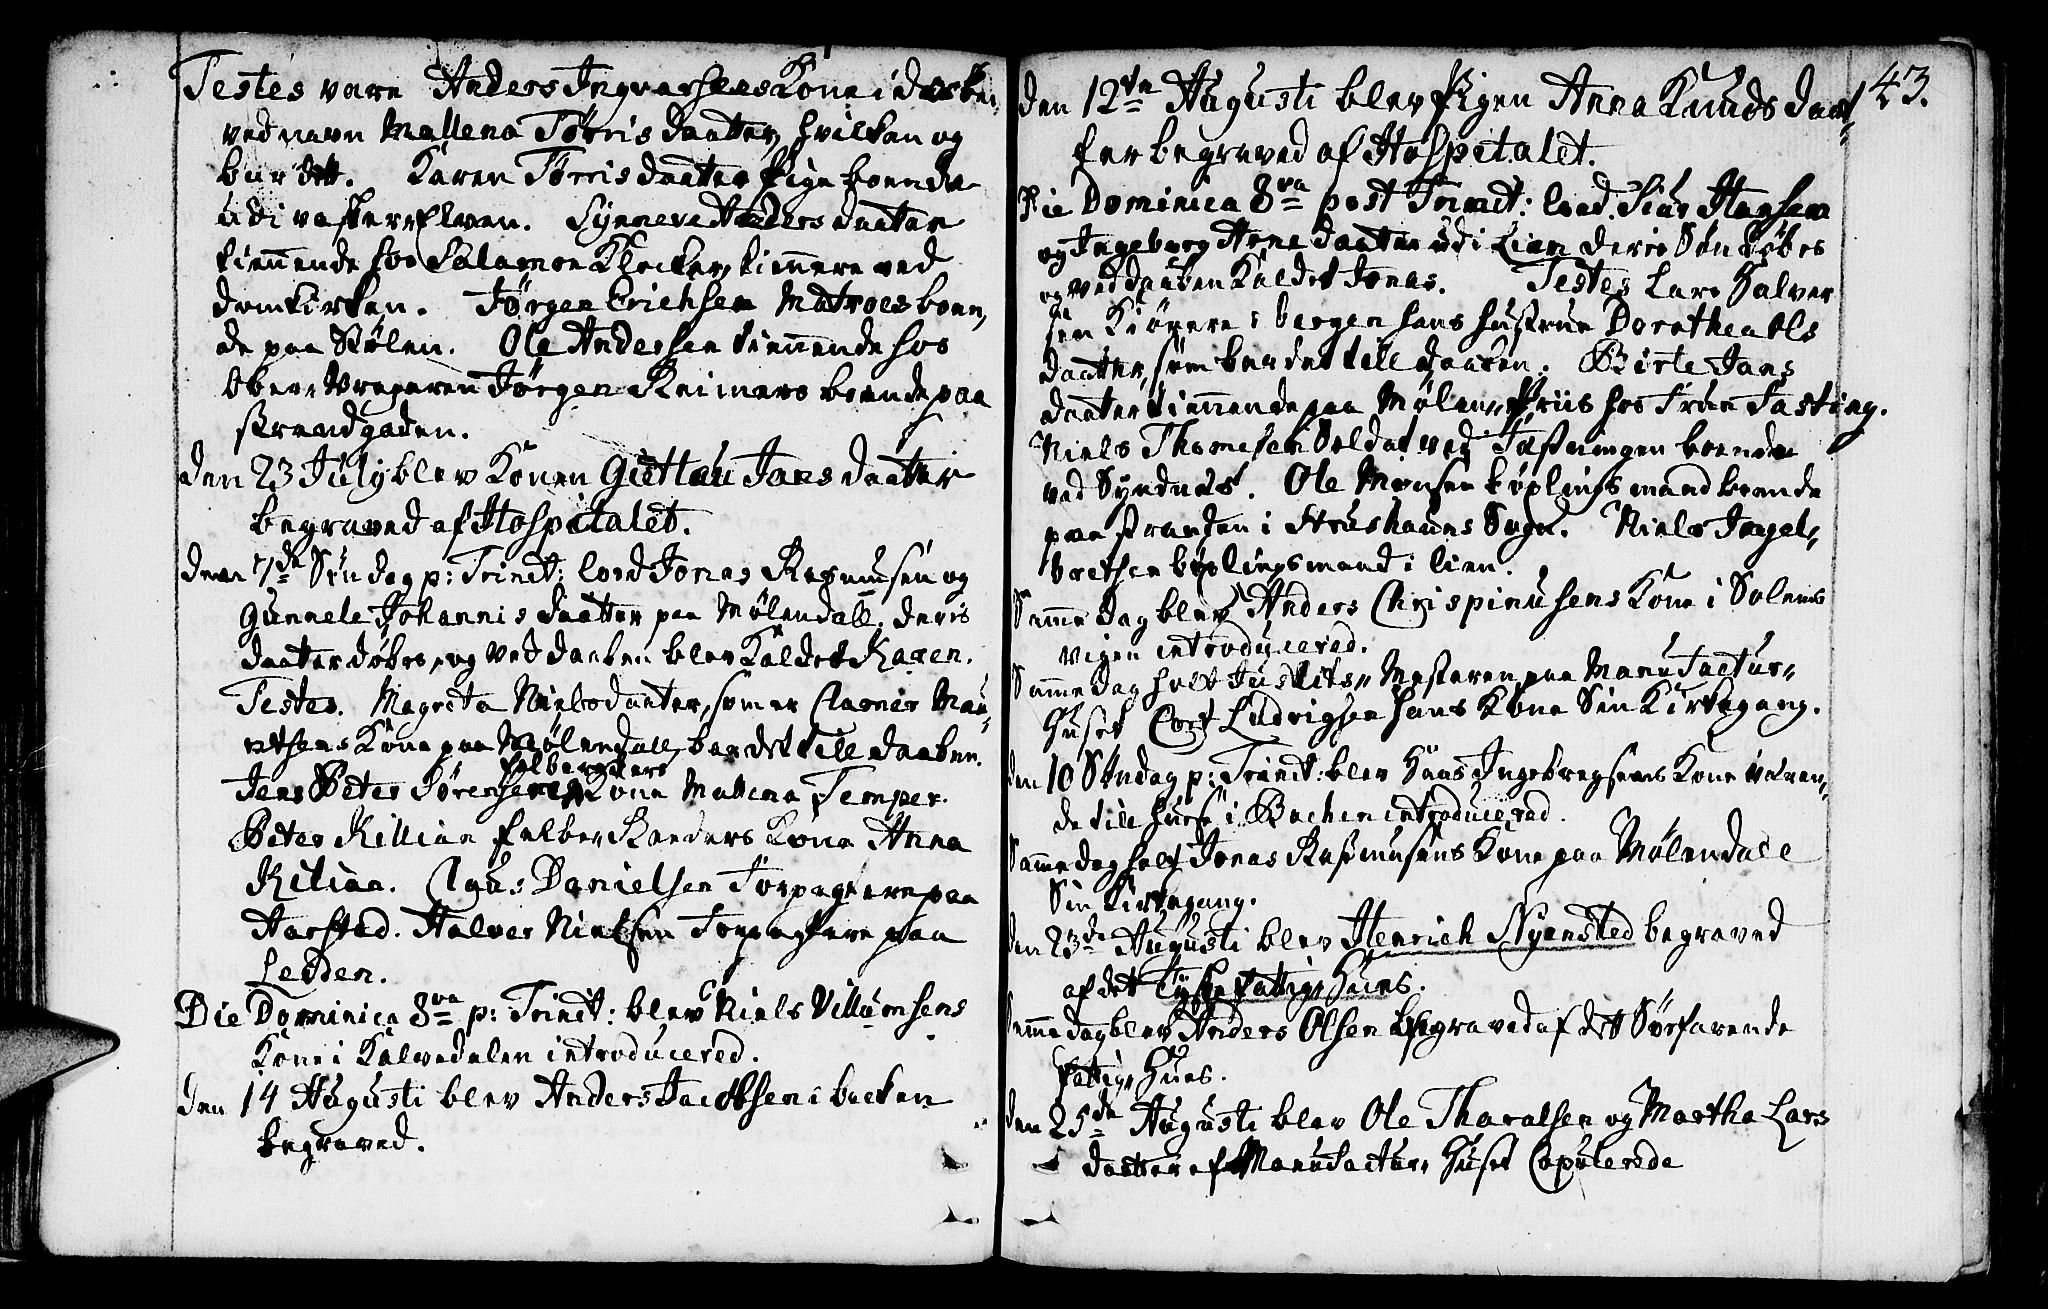 Testes vare Anders Ingvarsens Kone i
ved navn Mallena Tørris daatter, hvilken og
bar dett. Karen Tørris daatter Pige boende
udi vasker Elven. Synneve Anders daatter
tiennende hos Salamon Klocker, tiennere ved
domkirken. Jørgen Erichsen Matroes boen,,
de paa Stølen. Ole Andersen tiennende hos
Ober Vrageren Jørgen Reimers boende paa
strandgaden.
den 23 July blev Konen Guttau Jans daatter
begraved af Hospitalet.
den 7de Søndag p: Trinit: lood Jonas Rasmusen og
Gunnele Johannis daatter paa Mølendall, deris
daatter døbes, og ved daaben blev Kaldet Karen.
Testes. Magreta Niels daatter, som er Claones Mau,,
ritsens Kone paa Mølendall, bar det till daaben.
felbereders
Jens Peter Sørensens Kone Mallena Temper.
Peter Killian felber Reeders Kone Anna
Kilian. Claus Danielsen Forpagtere paa
Aarstad. Halver Nielsen Forpagtere paa
Ledden.
Die Dominica 8va p: Trinit: blev Niels Villumsens
Kone i Kalvedalen introducered.
den 14 Augusti blev Anders Jacobsen i backen
begraved.
43.
den 12te Augusti blev Pigen Anna Knuds daat,,
ter begraved af Hospitalet.
Die Dominica 8va post Trinit: lood Siur Hansen
og Ingeborg Arne daatter udi Lien deris Søn døbes
og ved daaben Kaldet Jonas. Testes Lars Halver
sen Kiørere i bergen hans hustrue Dorothea Ols
daatter, som bar det till daaben. Birte Jans
daatter tiennende paa Mølen Priis hos Frue Fasting.
Niels Thomesen Soldat ved Fæstningen boende
ved Syndnes. Ole Monsen bøxlings mand boende
paa stranden i Strushauns Sogn. Niels Ingel,,
bretsen bøxlingsmand i lien.
Samme dag blev Anders Chrispinusens Kone i Solems
vigen introducered.
Samme dag holt Justits,, Mesteren paa Manufactur,,
Huset Cort Ludvigsen hans Kone Sin Kirkegang.
den 10 Søndag p: Trinit: blev Hans Ingebregsens Kone væren,,
de till huse i Bachen introducered.
Samme dag holt Jonas Rasmusens Kone paa Mølendall
Sin Kirkegang.
den 23de Augusti blev Henrich Nyensted begraved
af det Tyske fattige Hues.
Samme dag blev Anders Olsen begraved af det Søefarende
fattige Hues.
den 25de Augusti blev Ole Tharalsen og Martha Lars
daatter af Manufactur Huset Copulerede